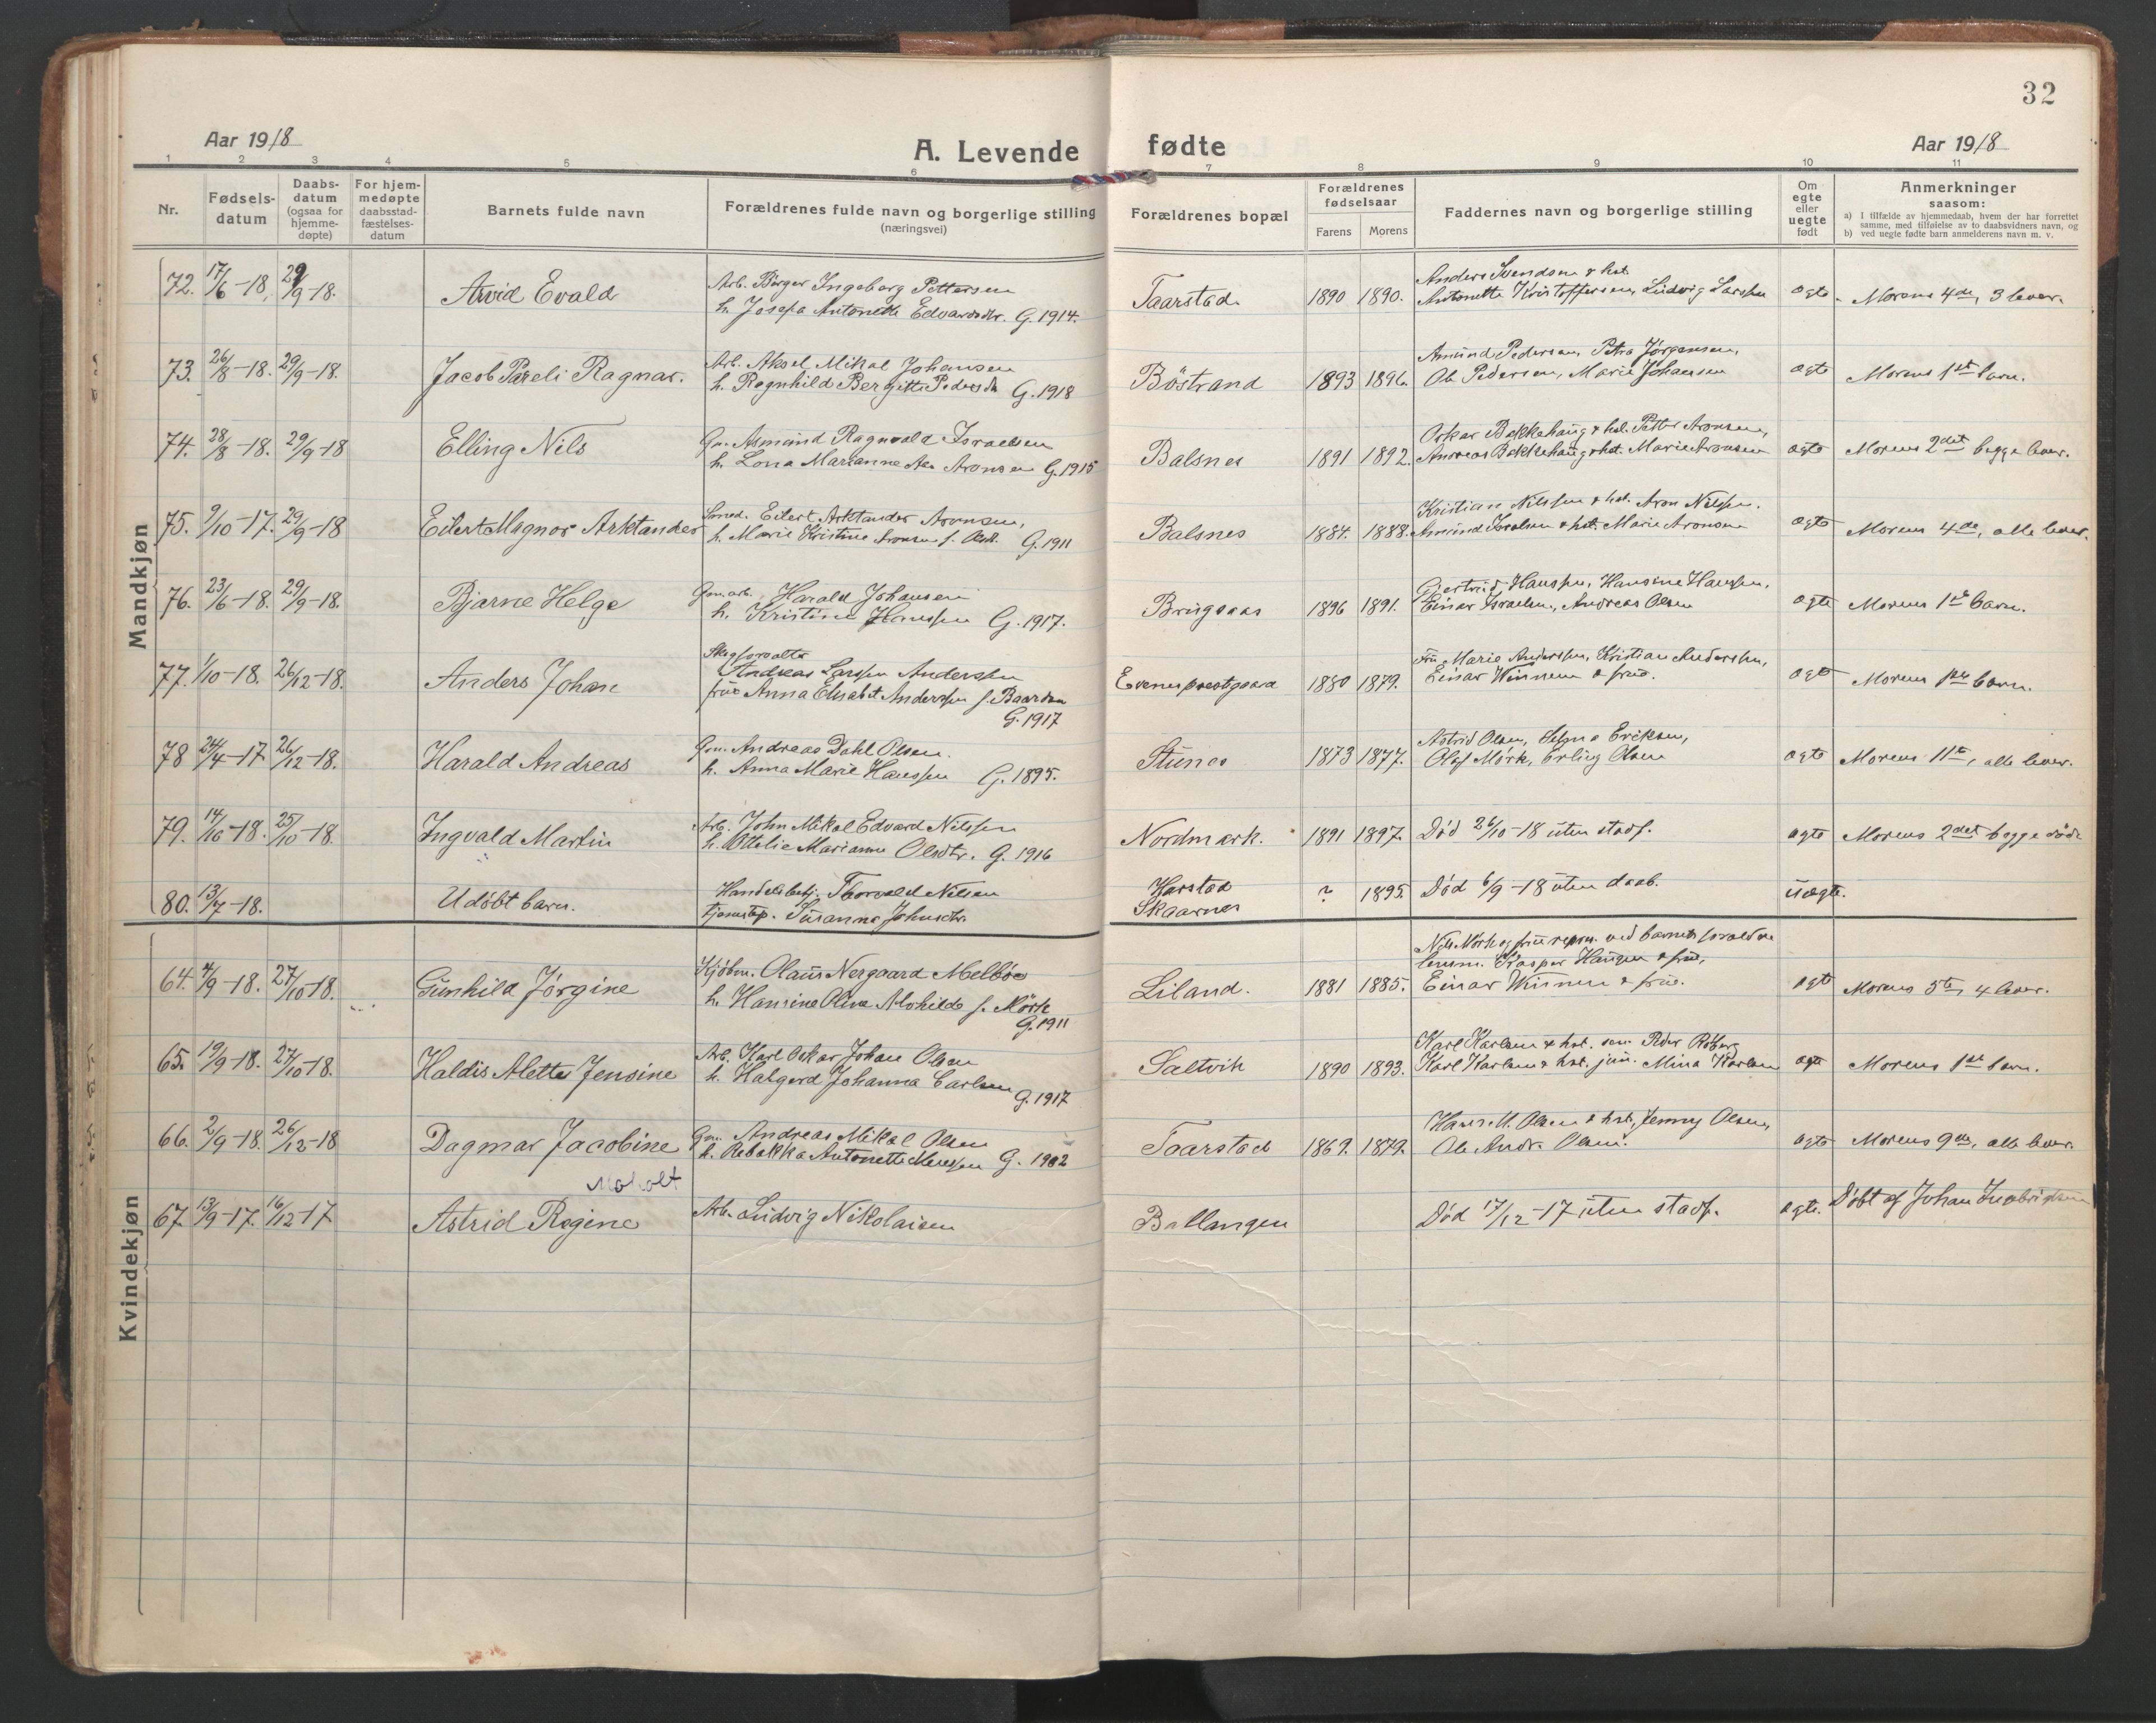 32
Aar 1918
A. Levende
fødte
Aar 1918
1 2 3 4 5 6 7 8 9 10 11
Nr.
Fødsels-
datum
Daabs-
datum
(ogsaa for
hjemme-
døpte)
For hjem-
medøpte
daabsstad-
fæstelses-
datum
Barnets fulde navn
Forældrenes fulde navn og borgerlige stilling
(næringsvei)
Forældrenes bopæl
Forældrenes
fødselsaar
Farens Morens
Faddernes navn og borgerlige stilling
Om
egte
eller
uegte
født
Anmerkninger
saasom:
a) I tilfælde av hjemmedaab, hvem der har forrettet
samme, med tilføielse av to daabsvidners navn, og
b) ved uegte fødte barn anmelderens navn m. v.
Mandkjøn
72. 17/6-18. 29/9-18. Arvid Evald
Arb. Birger Ingeborg Pettersen
h. Josefa Antonette Edvardsdtr. G. 1914.
Taarstad. 1890 1890.
Anders Svendsen & hst.
Antonette Kristoffersen, Ludvig Larssen
egte. Morens 4de, 3 lever.
73. 26/8-18. 29/9-18. Jacob Pareli Ragnar.
Arb. Aksel Mikal Johansen
h. Ragnhild Bergitte Pedersdt. G. 1918
Böstrand 1893 1896.
Amund Pedersen, Petra Jørgensen,
Ole Pedersen, Marie Johansen
egte Morens 1ste barn.
74. 28/8-18. 29/9-18 Elling Nils
Gm. Asmund Ragnvald Israelsen
h. Lona Marianne Aronsen G. 1915
Balsnes 1891 1892.
Oskar Bakkehaug & hst. Petter Aronsen,
Andreas Bakkehaug & hst. Marie Aronsen
egte Morens 2det begge lever.
75. 9/10-17. 29/9-18 Eilert Magnor Arktander
Eilert Arktander Aronsen,
h. Marie Kristine Aronsen f. Olsdt. G. 1911
Balsnes 1884. 1888.
Kristian Nilssen & hst. Aron Nilssen.
Amund Israelsen & hst. Marie Aronsen
egte Morens 4de, alle lever.
76. 23/6-18. 29/9-18. Bjarne Helge
Gm. arb. Harald Johansen
h. Kristine Hanssen G. 1917.
Brugsaas 1896 1891.
Gjertrud Hanssen, Hansine Hanssen,
Einar Israelsen, Andreas Olsen
egte Morens 1ste barn.
77. 1/10-18. 26/12-18. Anders Johan
Skogforvalter
Andreas Larssen Anderssen
frue Anna Elisabet Anderssen f. Baardsen
G. 1917
Evenes prestgaard 1880 1879.
Fru Marie Anderssen, Kristian Anderssen,
Einar Winnem & frue.
egt Morens 1ste barn.
78 24/4-17 26/12-18. Harald Andreas
Gm. Andreas Dahl Olsen.
h. Anna Marie Hanssen G. 1895.
Stunes 1873 1877.
Astrid Olsen, Selma Eriksen,
Olaf Mørk, Erling Olsen
egte Morens 11te, alle lever.
79. 14/10-18. 25/10-18. Ingvald Martin
Arb. John Mikal Edvard Nilssen
h. Ottelie Marianne Olsdtr. G. 1916
Nordmark. 1891 1897.
Død 26/10-18 uten stadf.
egte Morens 2det begge døde
80. 13/7-18. Udøbt barn.
Handelsbetj. Thorvald Nilsen
tjenestep. Susanna Johnsdtr.
Harstad
Skaarnes
? 1895. Død 6/9-18 uten daab. uegte.
Kvindekjøn
64. 4/9-18. 27/10-18. Gunhild Jørgine
Kjøbm. Olaus Nergaard Melböe
h. Hansine Oline Alohilde f. Mörk
G. 1911
Liland. 1881 1885.
Nils Mörk og frue repres. ved barnets foraldre
lensm. Kasper Haugen & frue,
Einar Winnem & frue.
egt Morens 5te, 4 lever.
65. 19/9-18. 27/10-18. Haldis Alette Jensine
Arb. Karl Oskar Johan Olsen
h. Halgerd Johanna Carlsen G. 1917
Saltvik 1890 1893.
Karl Karlsen & hst. sen. Peder Roberg
Karl Karlsen & hst. jun. Mina Karlsen
egte Morens 1ste barn.
66. 2/9-18. 26/12-18 Dagmar Jacobine
Gm. Andreas Mikal Olsen
h. Rebekka Antonette Hanssen G. 1902
Taarstad 1869. 1879.
Hans M. Olsen & hst. Jenny Olsen,
Ole Andr. Olsen.
egte Morens 9de, alle lever.
Moholt
67. 13/9-17. 16/12-17 Astrid Regine
Arb. Ludvig Nikolaisen
Ballangen
Død 17/12-17 uten stadf.
egte. Døbt af Johan Ingebrigtsen